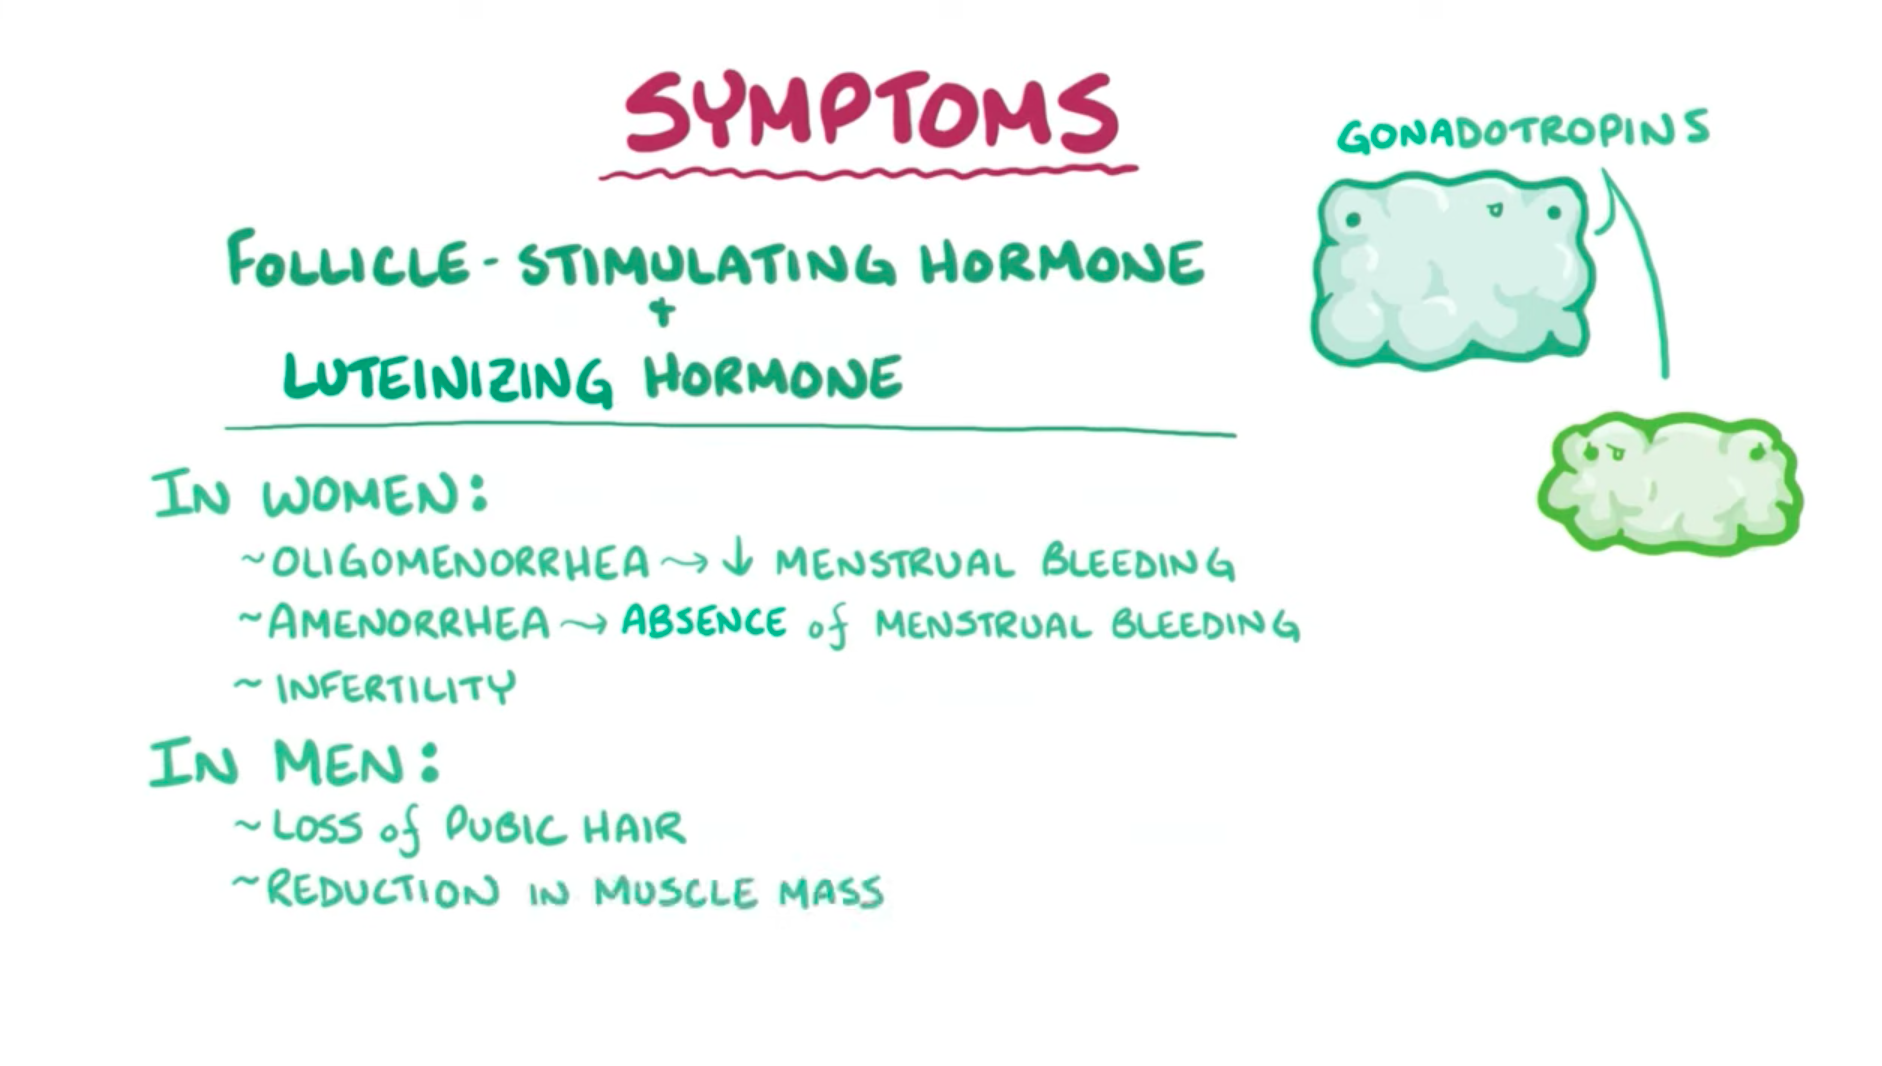 SYMPTOMS
GONADOTROPINS
FOLLICLE-STIMULATING HORMONE
+
LUTEINIZING HORMONE
IN WOMEN:
~OLIGOMENORRHEA → ↓ MENSTRUAL BLEEDING
~AMENORRHEA → ABSENCE of MENSTRUAL BLEEDING
~ INFERTILITY
IN MEN:
~ LOSS of PUBIC HAIR
~REDUCTION IN MUSCLE MASS